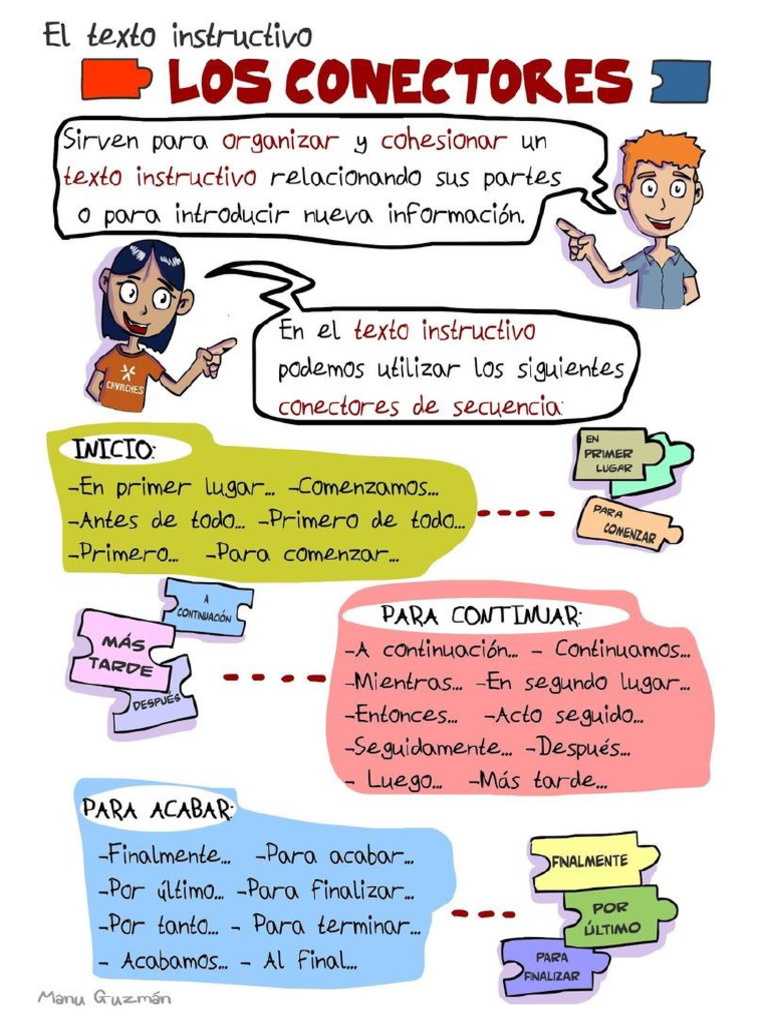 El texto instructivo
LOS CONECTORES
Sirven para organizar y cohesionar un
texto instructivo relacionando sus partes
o para introducir nueva información.
CAVRCHES
En el texto instructivo
podemos utilizar los siguientes
conectores de secuencia:
INICIO:
-En primer lugar... -Comenzamos...
-Antes de todo... -Primero de todo...
-Primero... -Para comenzar...
EN
PRIMER
LUGAR
PARA
COMENZAR
A
CONTINUACIÓN
MÁS
TARDE
DESPUÉS
PARA CONTINUAR:
-A continuación... - Continuamos...
-Mientras... -En segundo lugar...
-Entonces... -Acto seguido...
-Seguidamente... -Después...
- Luego... -Más tarde...
PARA ACABAR:
-Finalmente... -Para acabar...
-Por último... -Para finalizar...
-Por tanto... - Para terminar...
- Acabamos... - Al final...
FNALMENTE
POR
ÚLTIMO
PARA
FINALIZAR
Manu Guzmán